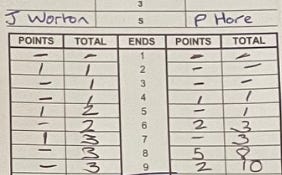 3
J Worton S P Hore
POINTS TOTAL ENDS POINTS TOTAL
- - 1 - -
1 1 2 - -
- 1 3 - -
- 1 4 1 1
1 2 5 - 1
- 2 6 2 3
1 3 7 - 3
- 3 8 5 8
- 3 9 2 10